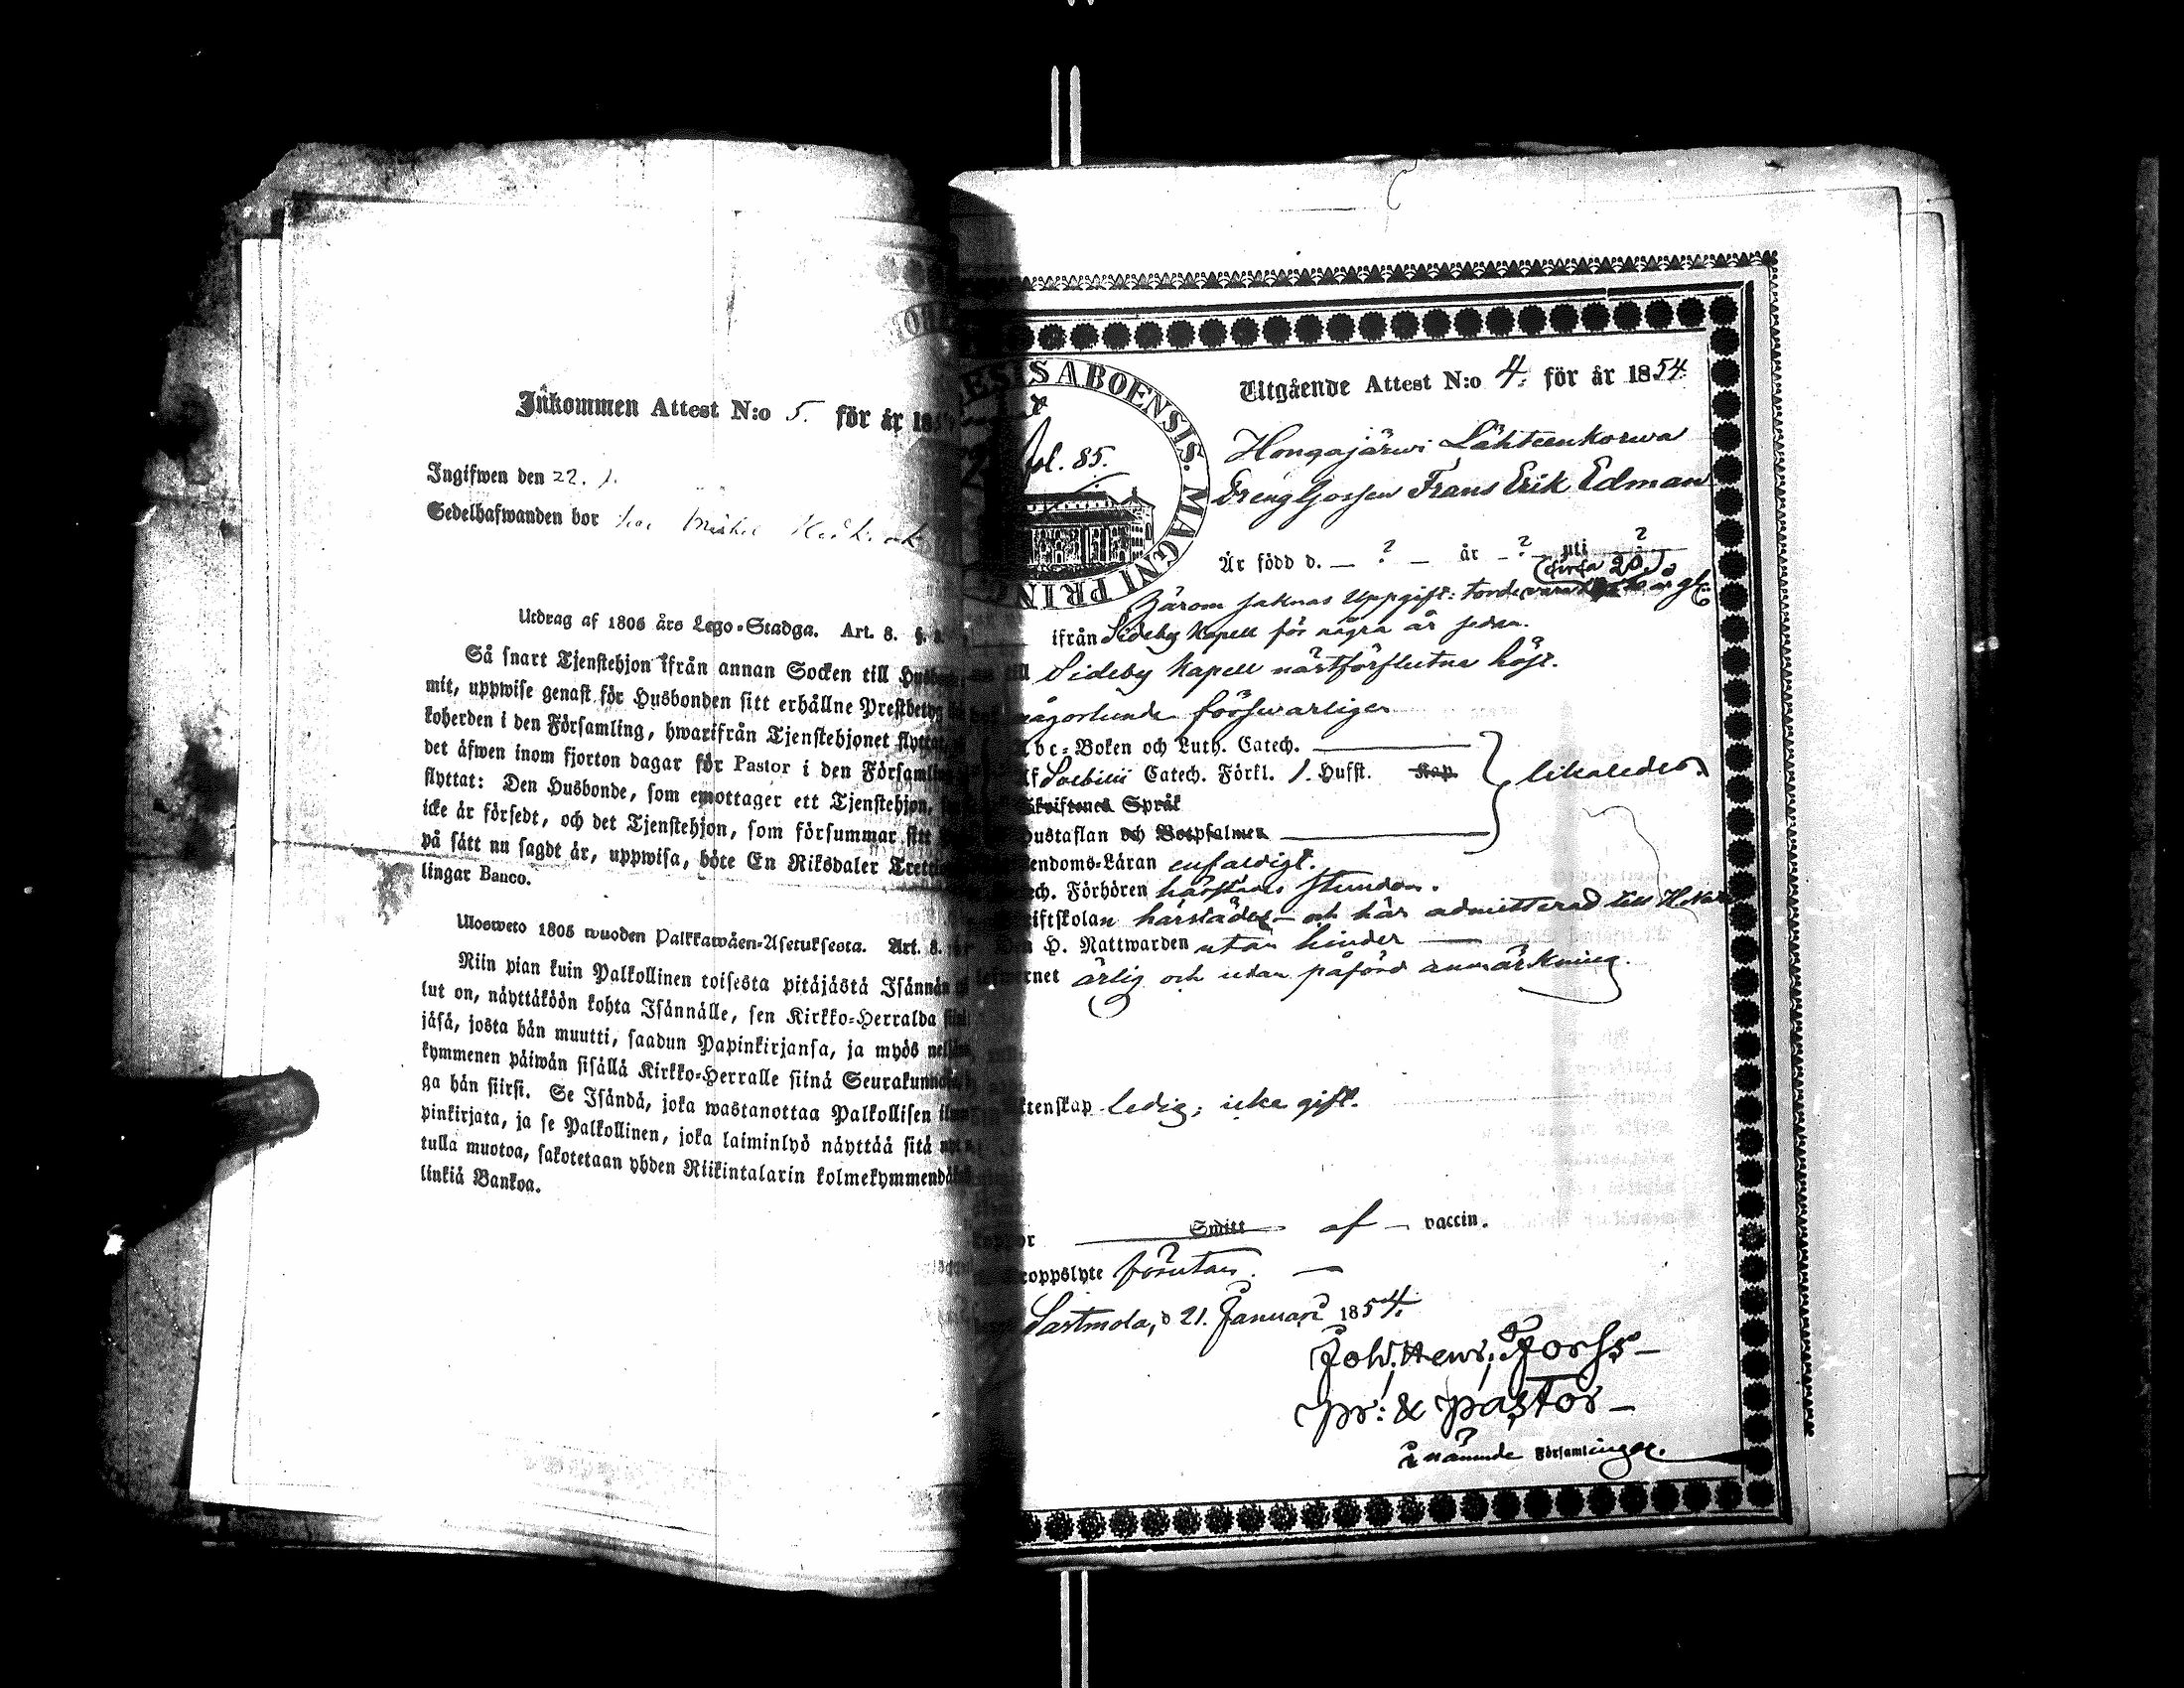 Inkommen Attest N:o 5. för år 185
Ingifwen den 22. 1.
Sedelhafwanden bor
Utdrag af 1805 års Lego-Stadga. Art. 8. §.
Så snart Tjenstehjon ifrån annan Socken till
mit, uppwise genast för Husbonden sitt erhållne Prestbetyg
koherden i den Församling, hwarifrån Tjenstehjonet flyttat,
det äfwen inom fjorton dagar för Pastor i den Församling
flyttat: Den Husbonde, som emottager ett Tjenstehjon,
icke är försedt, och det Tjenstehjon, som försummar sitt
på sätt nu sagdt är, uppwisa, böte En Riksdaler
lingar Banco.
Ulosweto 1805 wuoden Palkkawäen-Asetuksesta. Art. 8.
Niin pian kuin Palkollinen toisesta pitäjästä Isännän
lut on, näyttäköön kohta Isännälle, sen Kirkko-Herralda
jäsä, josta hän muutti, saadun Papinkirjansa, ja myös
kymmenen päiwän sisällä Kirkko-Herralle siinä
ga hän siirsi. Se Isändä, joka wastanottaa Palkollisen
pinkirjata, ja se Palkollinen, joka laiminlyö näyttää sitä
tulla muotoa, sakotetaan yhden Riikintalarin
linkiä Bankoa.
ESIS ABOENSIS. MAGNI PRIN
fol. 85.
Utgående Attest N:o 4. för år 1854.
Hongajärwi Lähteenkorwa
Drenggossen Frans Erik Edman
Är född d. — ? — år — ? — uti ?
circa 20.
Härom saknas Uppgift: torde vara
ifrån Sideby Kapell för några år sedan.
till Sideby Kapell nästförflutne höst.
någorlunda försvarligen
Abc-Boken och Luth. Catech.
Catech. Förkl. 1. Hufst. Kap. likaledes.
Skriftenes Språk
Hustaflan och Botpsalmen
endoms-Läran enfaldigt.
ech. Förhören härstädes stundom.
iftskolan härstädes — och här admitterad till H. Nattv
Den H. Nattwarden utan hinder —
lefwernet ärlig och utan påförd anmärkning.
ktenskap ledig; icke gift.
koppor Smitt af — vaccin.
roppslyte förutan. —
Sastmola, d 21. Januari 1854.
Joh. Henr. Forss —
pr: & pastor —
i nämnde Församlingar.